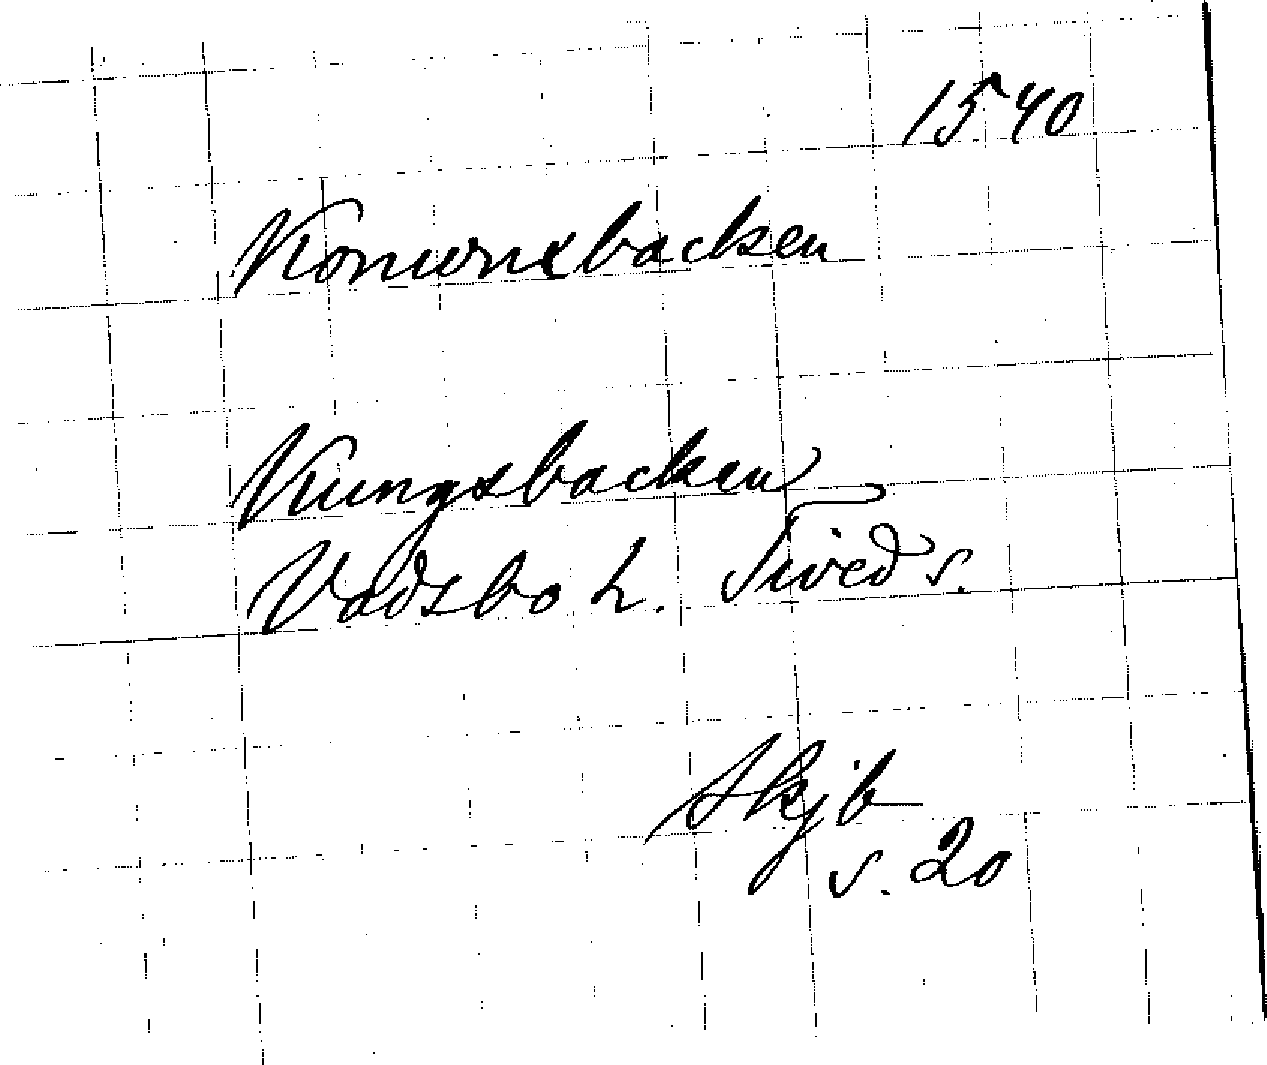 1540
Konungxbacken
Kungsbacken
Vadsbo h. Tiveds s.
Skjb
s. 20